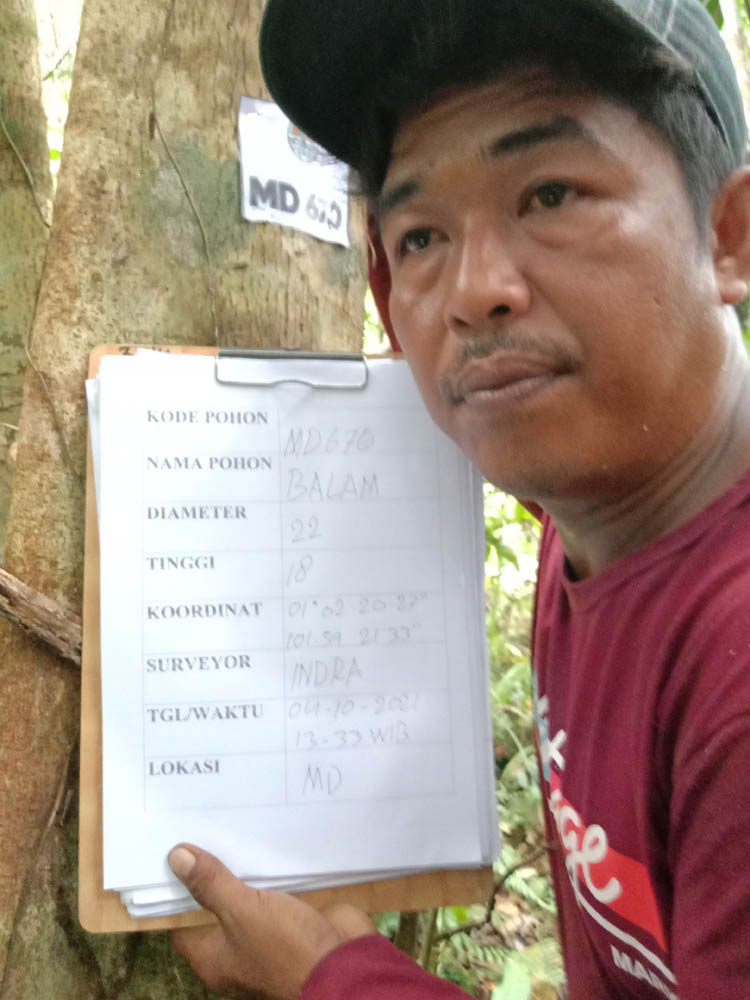 MD 670
KODE POHON MD670
NAMA POHON BALAM
DIAMETER 22
TINGGI 18
KOORDINAT 01°02 20.27"
101.59 21'33"
SURVEYOR INDRA
TGL/WAKTU 04-10-2021
13-33 WIB
LOKASI MD